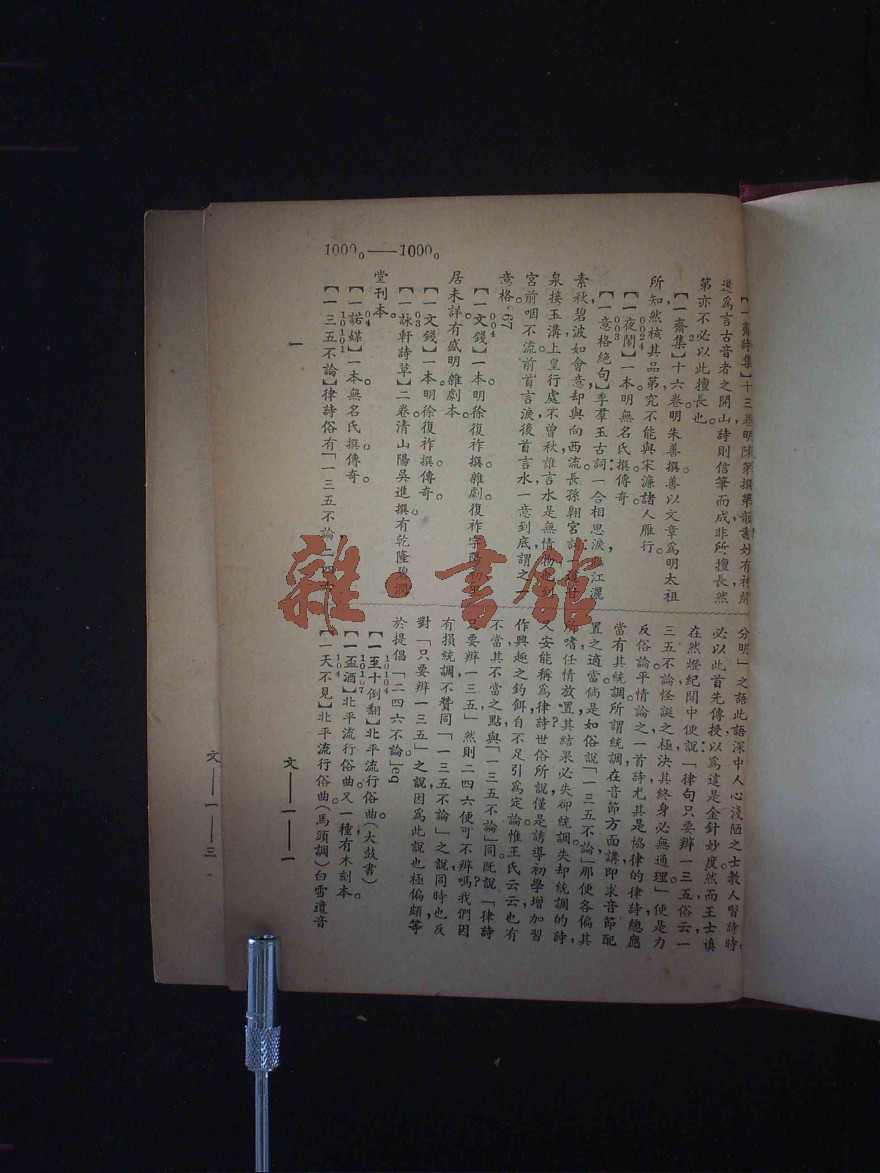 1000。——1000。
【一齋詩集】十三卷明陳第撰第
逆爲言古音者之開山詩則信筆而成非所擅長然
第亦不必以此擅長也。
【一齋集】十六卷明朱善撰善以文章爲明太祖
所知然核其品第究不能與宋濂諸人雁行。
0024
【一夜鬧】一本明無名氏撰傳奇。
003
【一意格絕句】李羣玉古詞：一合相思淚，江灑
素秋，碧波如會意，却與向西流。長孫翱宮詩：
泉接玉溝上皇行處不曾秋誰言水是無情物
宮前咽不流。前首言淚後首言水一意到底謂之
意格。67
004
【一文錢】一本明徐復祚撰雜劇。復祚字
居未詳有盛明雜劇本。
【一文錢】一本明徐復祚撰傳奇。
03
【一詠軒詩草】二卷清山陽吳進撰有乾隆
堂刊本。
04
【一諾媒】一本無名氏撰傳奇。
10101
【一三五不論】律詩俗有「一三五不論二四六
分明」之語此語深中人心淺陋之士教人習詩時，
必以此首先傳授以爲這是金針妙度然而王士禛
在然燈紀聞中便說：「律句只要辨一三五俗云一
三五不論怪誕之極決其終身必無通理」便是力
反俗論平情論之一首詩尤其是協律的律詩總應
當有其統調所謂統調在音節方面講即求音節配
置之適當倘是如俗說「一三五不論」那便各偏其
所嗜任情放置其結果必失却統調失却統調的詩，
又安能稱爲律詩？世俗所說僅是誘導初學增加習
作興趣之釣餌自不足引爲定論惟王氏云云也有
不當其不當之點與「一三五不論」同既說「律詩
只要辨一三五」然則二四六便可不辨嗎？我們因
有損統調不贊同「一三五不論」之說同時也反
對「只要辨一三五」之說因爲此說也極偏頗等
於提倡「二四六不論」。
10104
【一至十倒翻】北平流行俗曲。（大鼓書）
10107
【一盃酒】北平流行俗曲。又一種有木刻本。
104
【一天不見】北平流行俗曲（馬頭調）白雪遺音
一
文——一——一
文——一——三
雜·書館